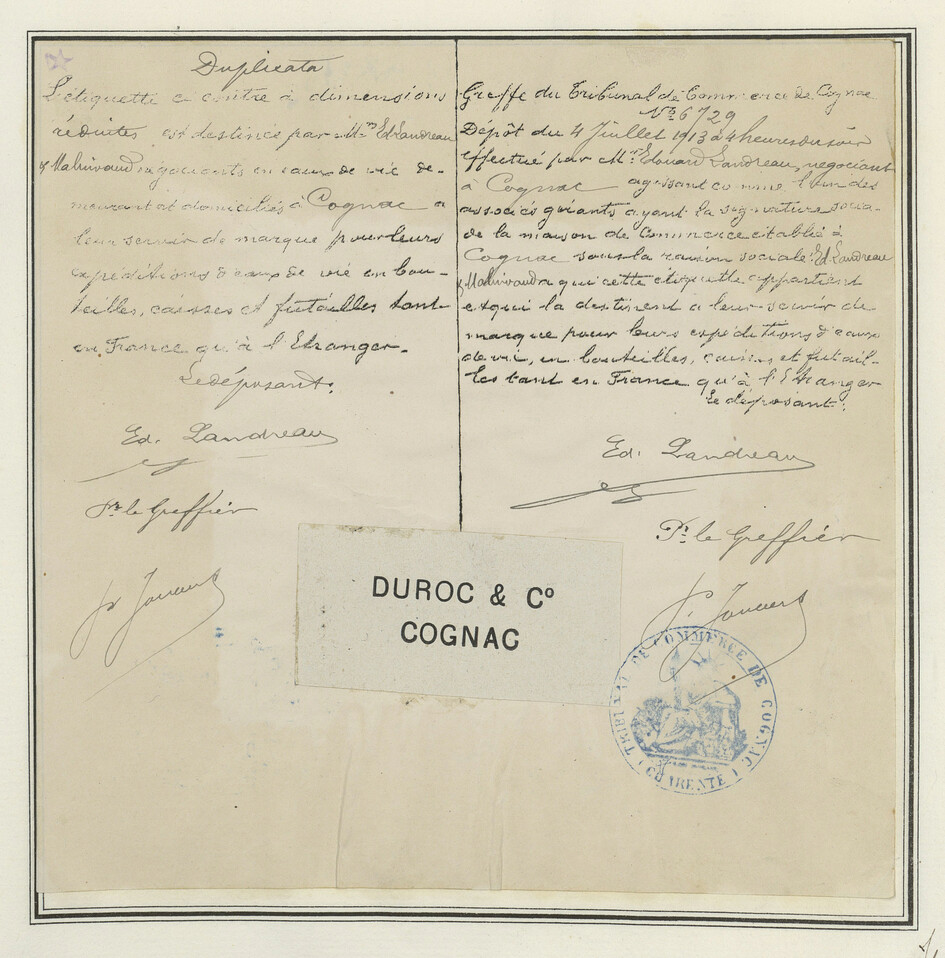 Duplicata
L'etiquette ci contre à dimensions
réduites est destinée par Mrs Ed Landreau
& Malnivaud négociants en eaux de vie de-
meurant et domiciliés à Cognac a
leur servir de marque pour leurs
expéditions d'eaux de vie en bou-
teilles, caisses et futailles tant
en France qu'à l'Etranger.
Le déposant:
Ed. Landreau
Pr le Greffier
Greffe du Tribunal de Commerce de Cognac
No 6729
Dépôt du 4 Juillet 1913 à 4 heures du soir
effectué par Mr Edouard Landreau, négociant
à Cognac agissant comme l'un des
associés gérants ayant la signature socia-
de la maison de Commerce établie à
Cognac sous la raison sociale: Ed Landreau
& Malnivaud a qui cette étiquette appartient
et qui la destinent a leur servir de
marque pour leurs expéditions d'eaux
de vie, en bouteilles, caisses et futail-
les tant en France qu'à l'Etranger
Le déposant:
Ed. Landreau
Pr le Greffier
DUROC & Co
COGNAC
TRIBUNAL DE COMMERCE DE COGNAC
(CHARENTE)